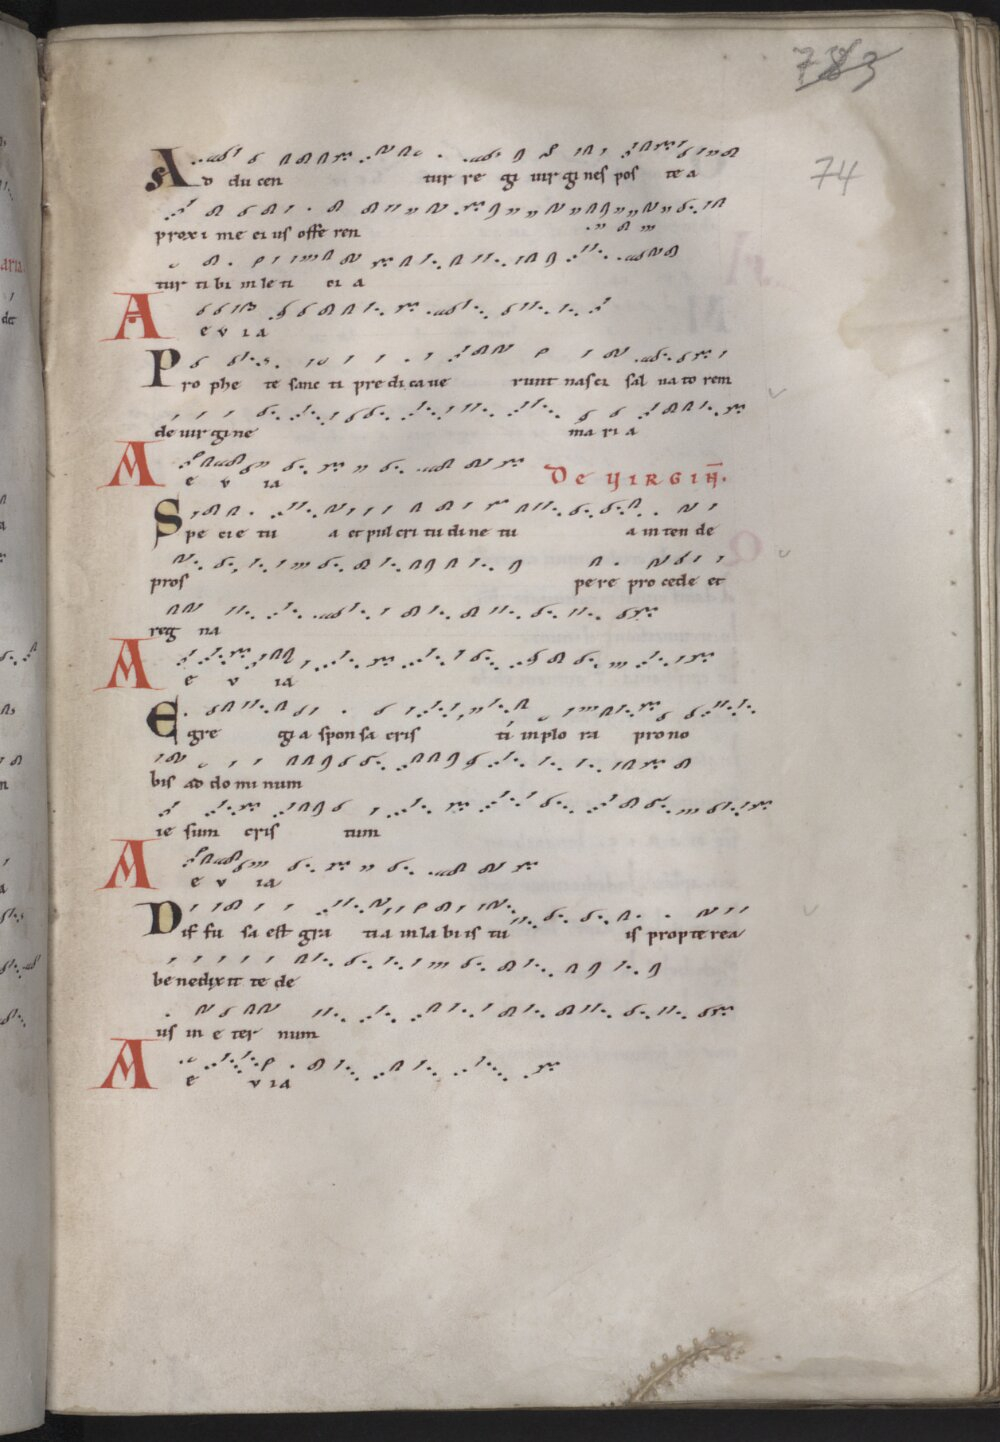 783
74
Ad du cen tur re gi uir gi nes pos te a
prox i me ei us offe ren
tur ti bi in le ti ci a
A e v i a
Pro phe te sanc ti pre di ca ue runt nasci sal uato rem
de uir gi ne ma ri a
A e v ia De VIRGIN̄.
Spe cie tu a et pul cri tu di ne tu a in ten de
pros pere pro cede et
reg na
A e v ia
Egre gi a spon sa cris ti in plo ra pro no
bis ad do mi num
ie sum cris tum
A e v ia
Dif fu sa est gra tia in la bi is tu is propterea
be nedixit te de
us in e ter num
A e v ia